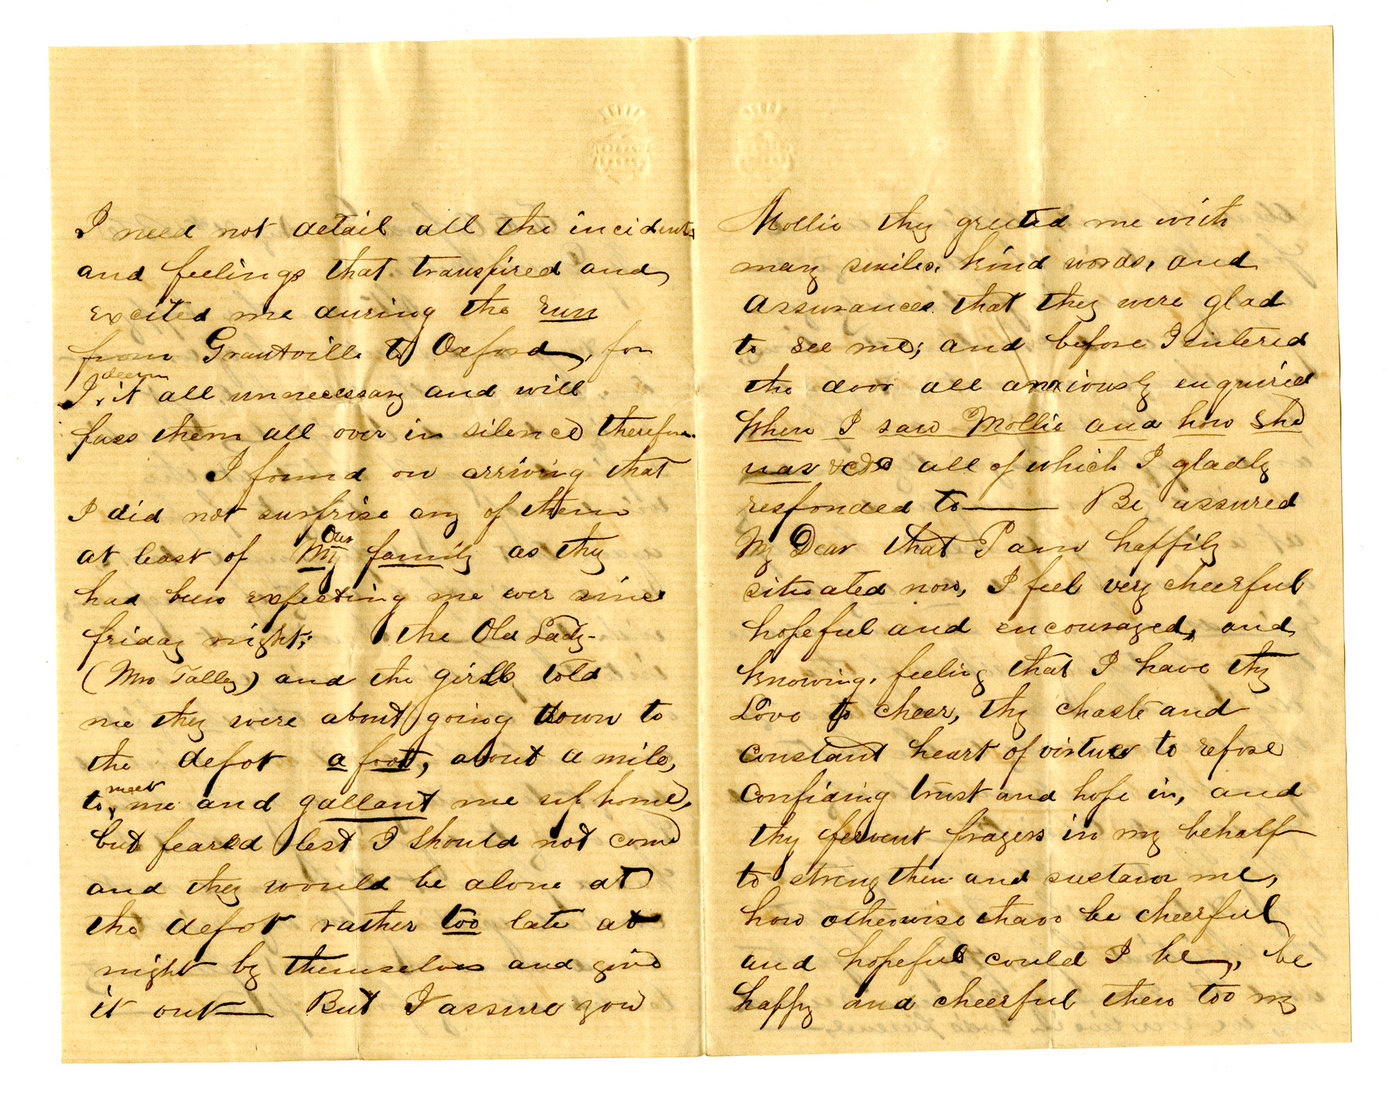 I need not detail all the incidents
and feelings that transpired and
excited me during the run
from Grantville to Oxford, for
deem
I ‸ it all unnecessary and will
pass them all over in silence therefore.
I found on arriving that
I did not surprise any of them
Our
at least of My family as they
had been expecting me ever since
friday night; the Old Lady-
(Mrs Talley) and the girls told
me they were about going down to
the depot a foot, about a mile,
meet
to ‸ me and gallant me up home,
but feared lest I should not come
and they would be alone at
the depot rather too late at
night by themselves and give
it out— But I assure you
Mollie they greeted me with
many smiles, kind words, and
assurances that they were glad
to see me; and before I entered
the door all anxiously enquired
When I saw Mollie and how she
was &c &c all of which I gladly
responded to— Be assured
My Dear that I am happily
situated now, I feel very cheerful
hopeful and encouraged, and
knowing, feeling that I have thy
Love to cheer, thy chaste and
constant heart of virtue to repose
confiding trust and hope in, and
thy fervent prayers in my behalf
to strengthen and sustain me,
how otherwise than be cheerful
and hopeful could I be, be
happy and cheerful then too my